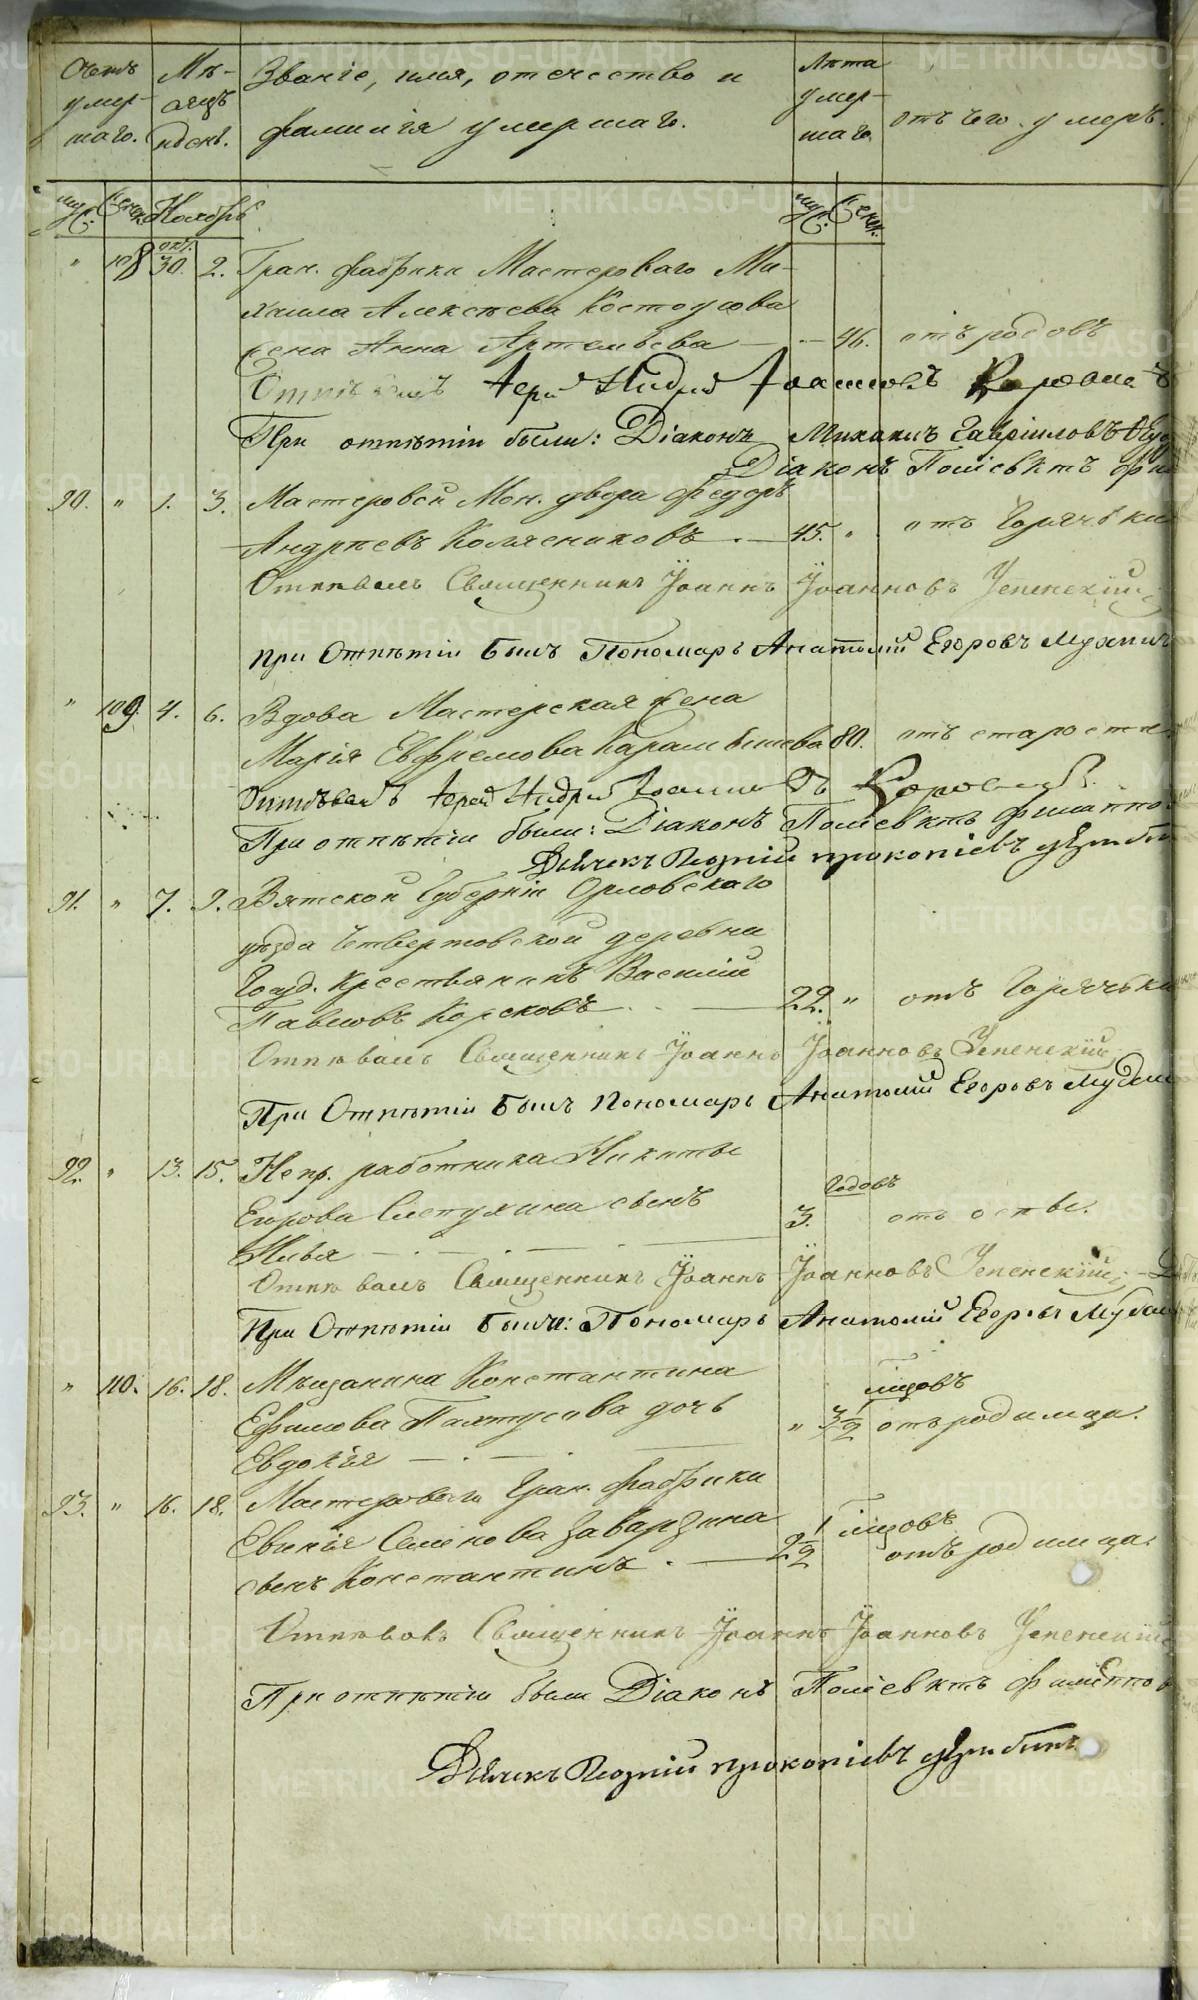 Счетъ умер-шаго. Мѣ-сяцъ и день. Званіе, имя, отечество и фамилія умершаго. Лѣта умер-шаго отъ чего умеръ.
муж. женск. Ноябрь муж. женск.
" 108 окт. 30. 2. Гран. фабрики Мастероваго Ми-
хаила Алексѣева Костоусова
жена Анна Артемьева — 46. отъ родовъ
Отпѣвалъ Іерей Андрей Іоанновъ
При отпѣтіи были: Діаконъ Михаилъ Гавріиловъ
Діаконъ Поліевктъ
90. " 1. 3. Мастеровой Мон. двора Федоръ
Андреевъ Колясниковъ — 45. " отъ Горячки
Отпѣвалъ Священникъ Іоаннъ Іоанновъ Успенскій
При Отпѣтіи былъ Пономарь Анатолій Егоровъ
" 109. 4. 6. Вдова Мастерская жена
Марія Евфремова Карамышева 80. отъ старости
Отпѣвалъ Іерей Андрей Іоанновъ
При отпѣтіи были: Діаконъ Поліевктъ Филиппо
Дьячекъ Георгій Прокопіевъ
91. " 7. 9. Вятской Губерніи Орловскаго
уѣзда Четвертовской деревни
Госуд. крестьянинъ Василій
Павловъ Корсковъ — 22. " отъ Горячьки
Отпѣвалъ Священникъ Іоаннъ Іоанновъ Успенскій
При Отпѣтіи былъ Пономарь Анатолій Егоровъ
92. " 13. 15. Непр. работника Никиты
Егорова Слепухина сынъ годовъ
Илья — 3. отъ оспы.
Отпѣвалъ Священникъ Іоаннъ Іоанновъ Успенскій
При Отпѣтіи былъ: Пономарь Анатолій Егоровъ
" 110. 16. 18. Мѣщанина Константина мѣсцовъ
Ефимова Пахтусова дочь " 3 1/2 отъ родимца.
Евдокія —
93. " 16. 18. Мастероваго Гран. фабрики
Евгнія Семенова Заварзина 2 1/2 мѣсцовъ
сынъ Константинъ — отъ родимца.
Отпѣвалъ Священникъ Іоаннъ Іоанновъ Успенскій
При отпѣтіи были Діаконъ Поліевктъ Филиппов
Дьячекъ Георгій Прокопіевъ
METRIKI.GASO-URAL.RU